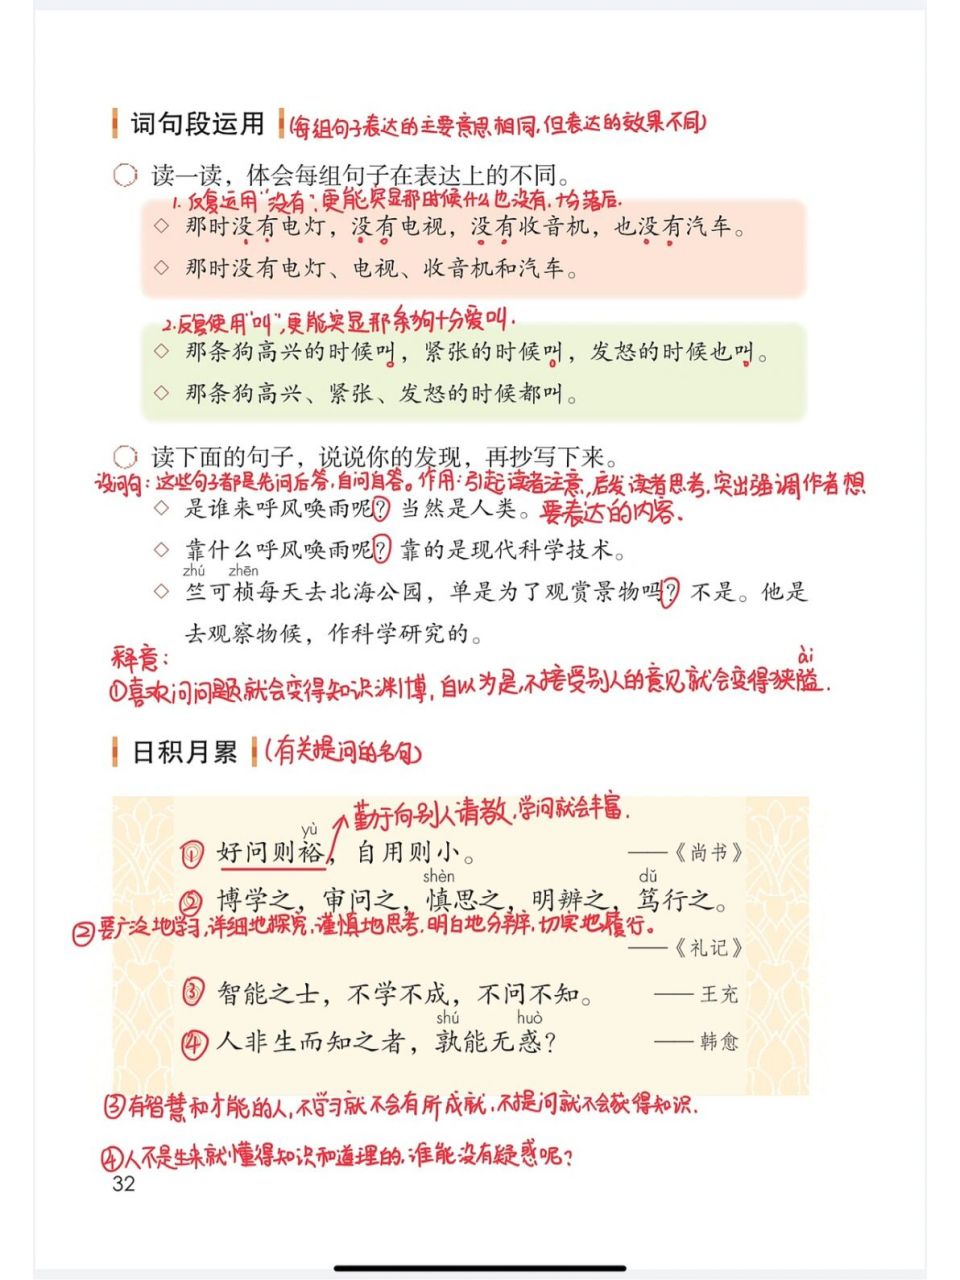 词句段运用 (每组句子表达的主要意思相同,但表达的效果不同)
读一读，体会每组句子在表达上的不同。
1.反复运用"没有",更能突显那时候什么也没有,十分落后.
◇ 那时没有电灯，没有电视，没有收音机，也没有汽车。
◇ 那时没有电灯、电视、收音机和汽车。
2.反复使用"叫",更能突显那条狗十分爱叫.
◇ 那条狗高兴的时候叫，紧张的时候叫，发怒的时候也叫。
◇ 那条狗高兴、紧张、发怒的时候都叫。
读下面的句子，说说你的发现，再抄写下来。
设问句:这些句子都是先问后答,自问自答。作用:引起读者注意,启发读者思考,突出强调作者想
◇ 是谁来呼风唤雨呢？当然是人类。 要表达的内容.
◇ 靠什么呼风唤雨呢？靠的是现代科学技术。
zhú zhēn
◇ 竺可桢每天去北海公园，单是为了观赏景物吗？不是。他是
去观察物候，作科学研究的。
释意:
ài
①喜欢问问题就会变得知识渊博,自以为是,不接受别人的意见就会变得狭隘.
日积月累 (有关提问的名句)
勤于向别人请教,学问就会丰富.
yù
① 好问则裕，自用则小。 ——《尚书》
shèn dǔ
② 博学之，审问之，慎思之，明辨之，笃行之。
②要广泛地学习,详细地探究,谨慎地思考,明白地分辨,切实地履行。
——《礼记》
③ 智能之士，不学不成，不问不知。 ——王充
shú huò
④ 人非生而知之者，孰能无惑？ ——韩愈
③有智慧和才能的人,不学习就不会有所成就,不提问就不会获得知识.
④人不是生来就懂得知识和道理的,谁能没有疑惑呢?
32